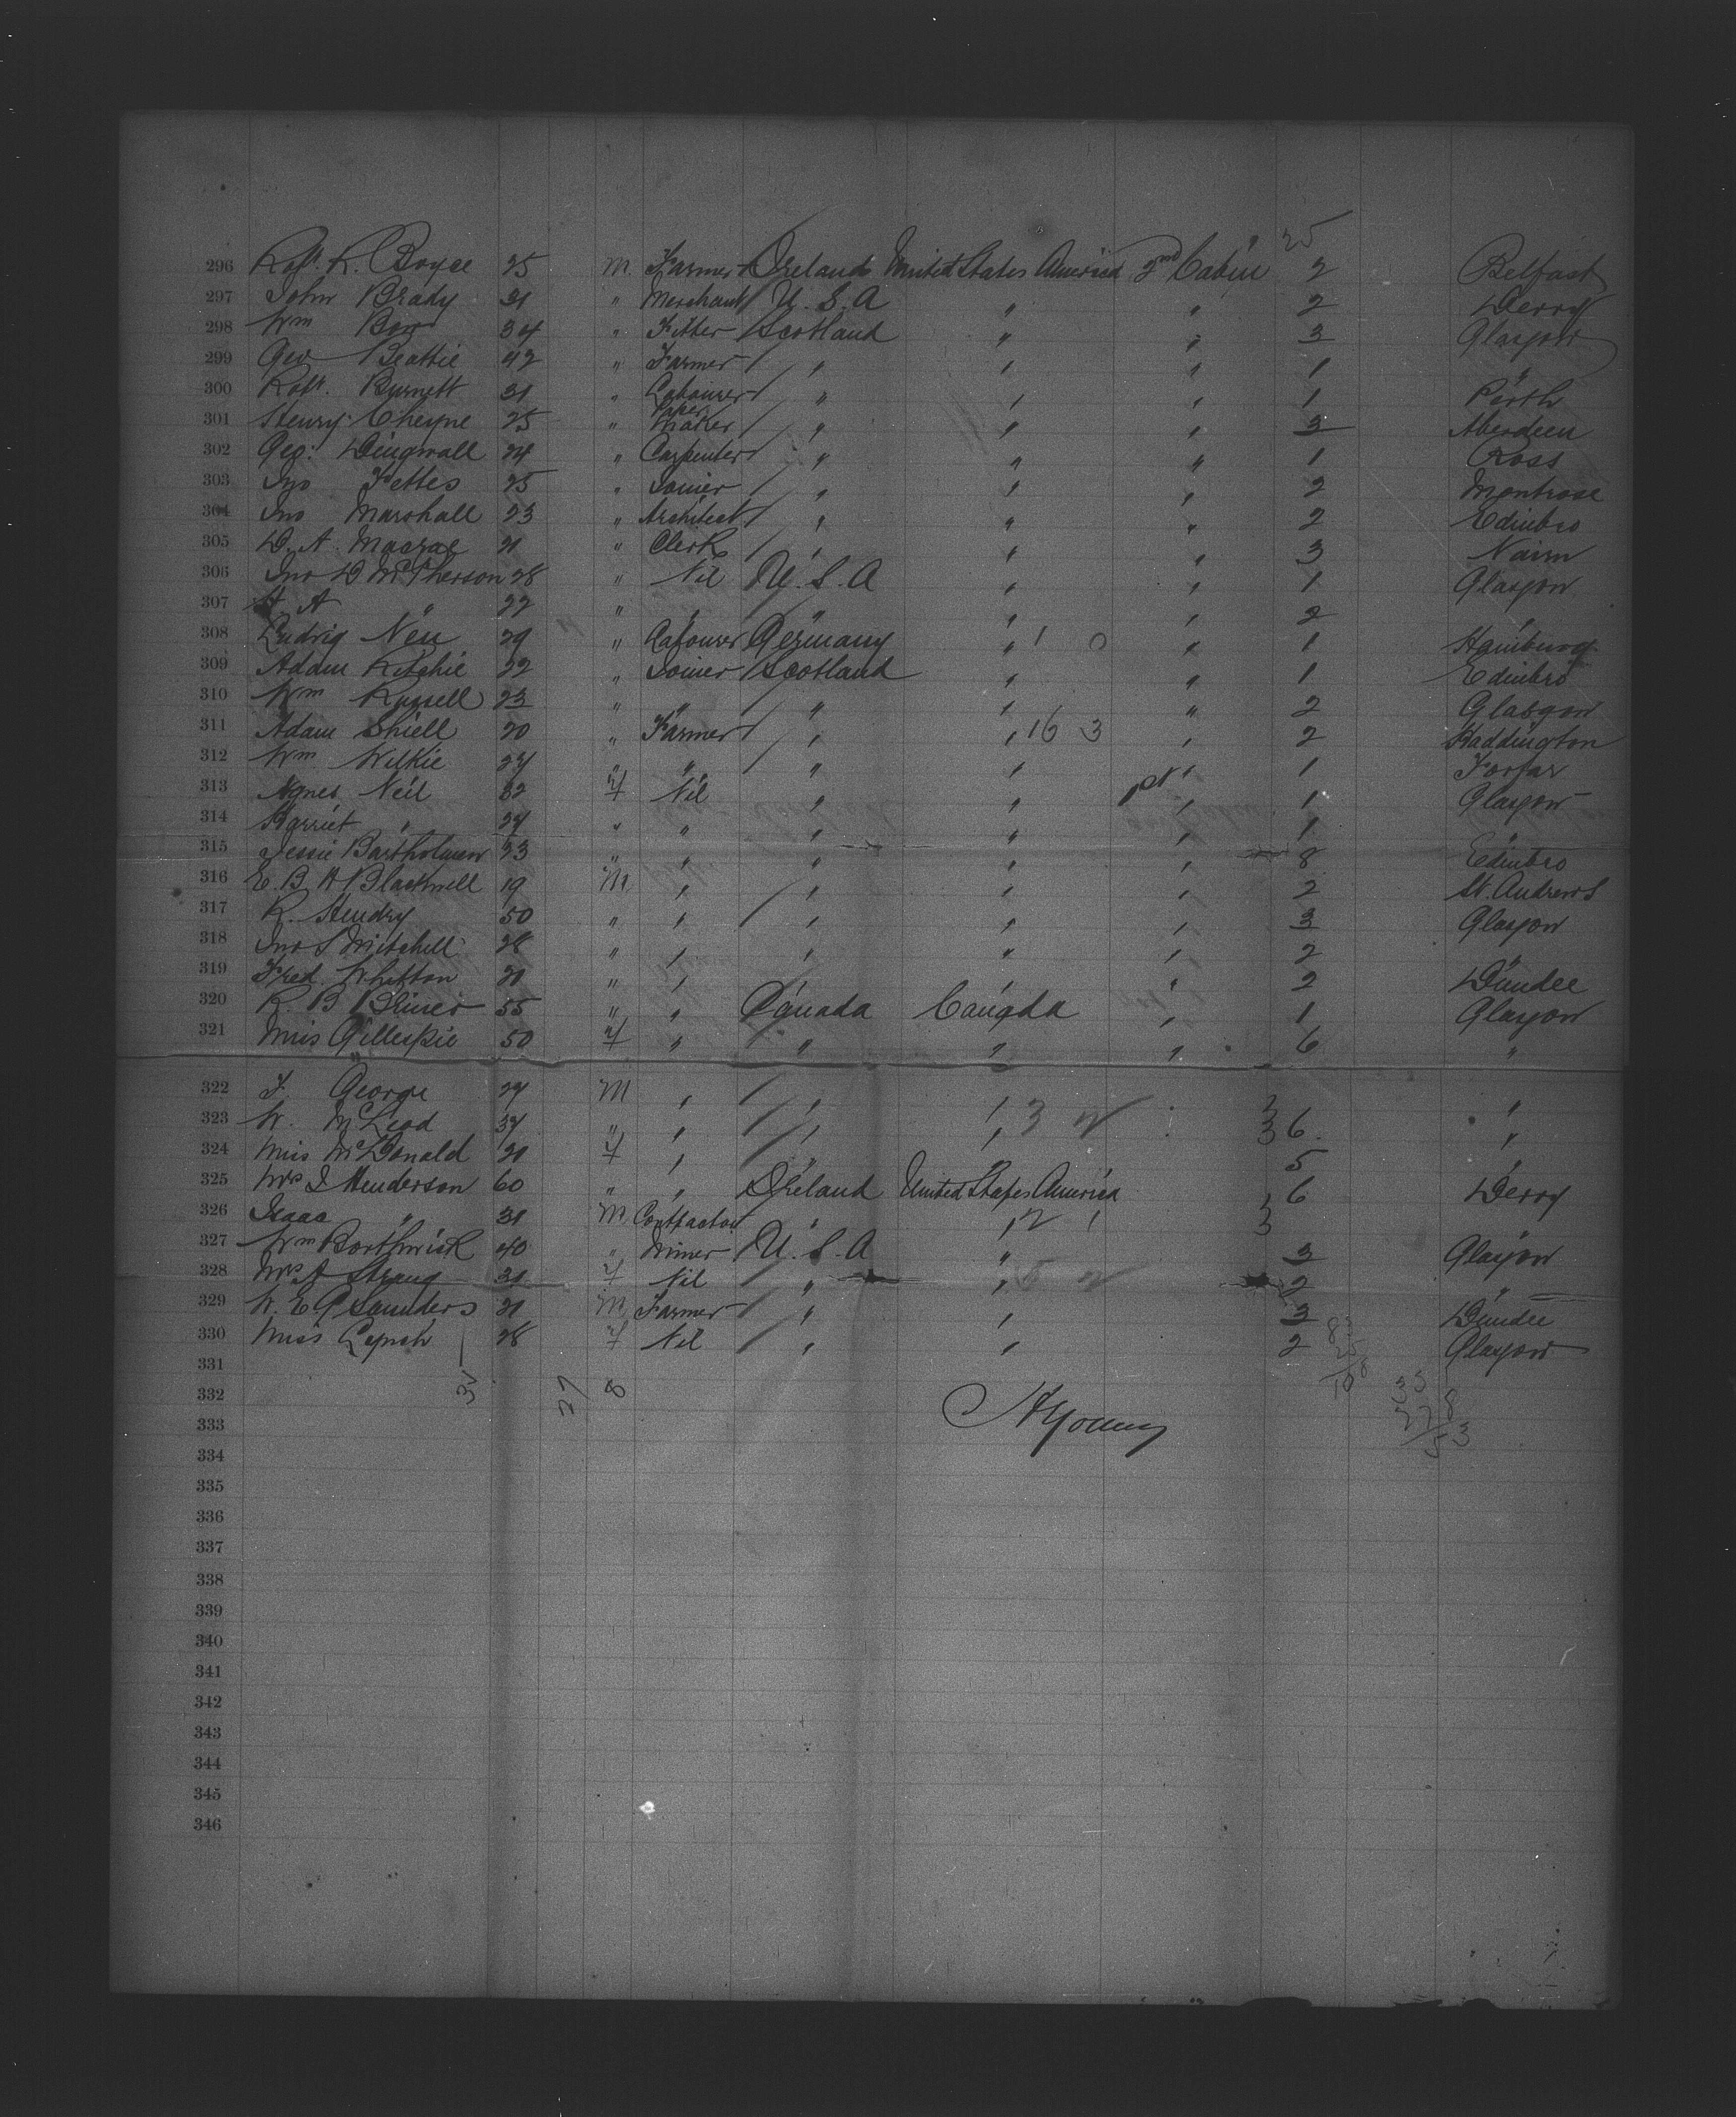 25
296 Robt. R. Boyce 25 M. Farmer Ireland United States America 2nd Cabin 2 Belfast
297 John Brady 31 " Merchant U.S.A " " 2 Derry
298 Wm 34 " Fitter Scotland " " 3 Glasgow
299 Geo Beattie 42 " Farmer " " " 1 "
300 Robt. Burnett 31 " Labourer " " " 1 Perth
301 Henry Cheyne 25 " Paper Maker " " " 3 Aberdeen
302 Geo. Dingwall 24 " Carpenter " " " 1 Ross
303 Jno Fettes 25 " Joiner " " " 2 Montrose
304 Jno Marshall 23 " Architect " " " 2 Edinbro
305 D. A. Macrae 21 " Clerk " " " 3 Nairn
306 Jno D McPherson 28 " Nil U.S.A " " 1 Glasgow
307 A " 22 " " " " " 2 "
308 Ludvig Neu 29 " Labourer Germany " 1 0 " 1 Hamburg.
309 Adam Ritchie 22 " Joiner Scotland " " 1 Edinbro
310 Wm Russell 23 " " " " " 2 Glasgow
311 Adam Shiell 20 " Farmer " " 16 3 " 2 Haddington
312 Wm Wilkie 24 " " " " " 1 Forfar
313 Agnes Neil 32 f Nil " " 1st " 1 Glasgow
314 Harriet " 24 " " " " " 1 "
315 Jessie Bartholmew 23 " " " " " 8 Edinbro
316 E. B. H Blackwell 19 M " " " " 2 St. Andrews
317 R. Hendry 50 " " " " " 3 Glasgow
318 Jno S Mitchell 28 " " " " " 2 "
319 Fred Whitton 21 " " " " " 2 Dundee
320 R. B 55 " " Canada Canada " 1 Glasgow
321 Miss Gillespie 50 f " " " " 6 "
322 J. George 24 M " " " "
323 W. McLeod 34 " " " " 3 2 3 6 "
324 Miss McDonald 21 f " " " 5 "
325 Mrs I Henderson 60 " " Ireland United States America 6 Derry
326 Isaac " 31 M Contractor " " 2 1 3
327 Wm Borthwick 40 " Miner U.S.A " 3 Glasgow
328 Mrs A Strang 31 f Nil " " 5 2 2 "
329 W. E. G Saunders 21 M Farmer " " 3 Dundee
330 Miss Lynch 28 f Nil " " 2 Glasgow
331
332 27 8
333 Young
334
335
336
337
338
339
340
341
342
343
344
345
346